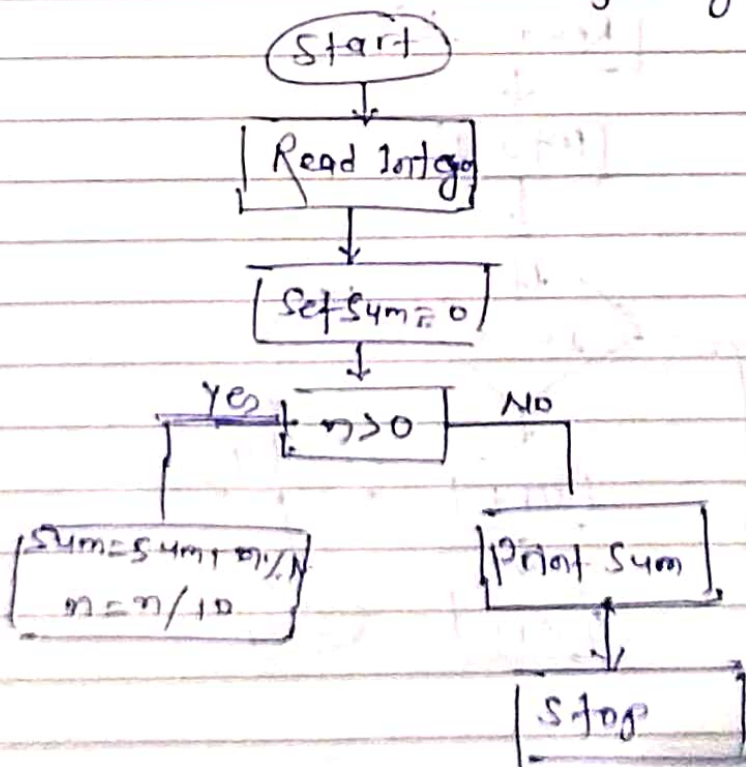 Start
Read Integ
Set Sum = 0
Yes
n>0
No
Sum=Sum+ n%N
n=n/10
Print Sum
Stop